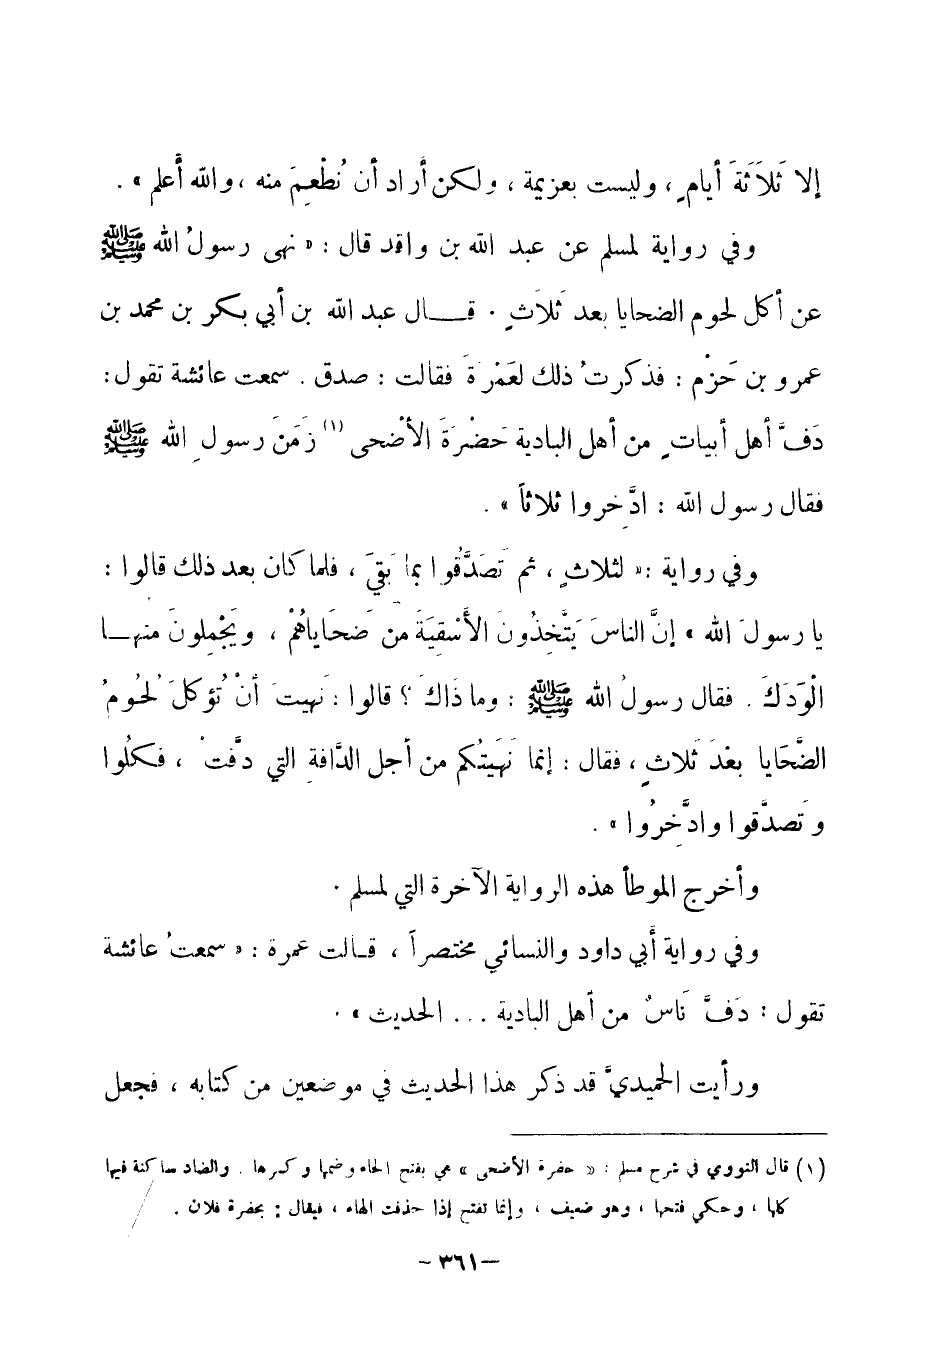 إلا ثَلَاثَةَ أيامٍ ، وليست بعزيمة ، ولكن أراد أن نُطْعِمَ منه ، والله أعلم » .
وفي رواية لمسلم عن عبد الله بن واقد قال : « نهى رسولُ الله ﷺ
عن أكل لحوم الضحايا بعد ثلاثٍ . قــال عبد الله بن أبي بكر بن محمد بن
عمرو بن حَزْم : فذكرتُ ذلك لعَمْرَةَ فقالت : صدق . سمعت عائشة تقول :
دَفَّ أهل أبياتٍ من أهل البادية حَضْرَةَ الأضْحى (١) زَمَنَ رسولِ الله ﷺ
فقال رسول الله : ادَّخِروا ثلاثاً » .
وفي رواية : « لثلاثٍ ، ثم تَصَدَّقُوا بما بَقيَ ، فلما كان بعد ذلك قالوا :
يا رسولَ الله » إنَّ الناسَ يَتَّخِذُونَ الأَسْقِيَةَ من ضَحَاياهُمْ ، ويَجْمِلونَ منهــا
الْوَدَكَ . فقال رسولُ الله ﷺ : وما ذَاكَ ؟ قالوا : نَهيتَ أنْ تُؤكلَ لُحُومُ
الضَّحَايا بعْدَ ثَلاثٍ ، فقال : إنما نَهَيْتُكم من أجل الدَّافةِ التي دفَّتْ ، فكُلُوا
وتَصدَّقوا وادَّخِرُوا » .
وأخرج الموطأ هذه الرواية الآخرة التي لمسلم .
وفي رواية أبي داود والنسائي مختصراً ، قـالت عمرة : « سمعتُ عائشة
تقول : دَفَّ نَاسٌ من أهل البادية ... الحديث » .
ورأيت الحميديَّ قد ذكر هذا الحديث في موضعين من كتابه ، فجعل
(١) قال النووي في شرح مسلم : « حضرة الأضحى » هي بفتح الحاء وضمها وكسرها . والضاد ساكنة فيها
كلها ، وحكي فتحها ، وهو ضعيف ، وإنما تفتح إذا حذفت الهاء ، فيقال : بحضرة فلان .
– ٣٦١ –